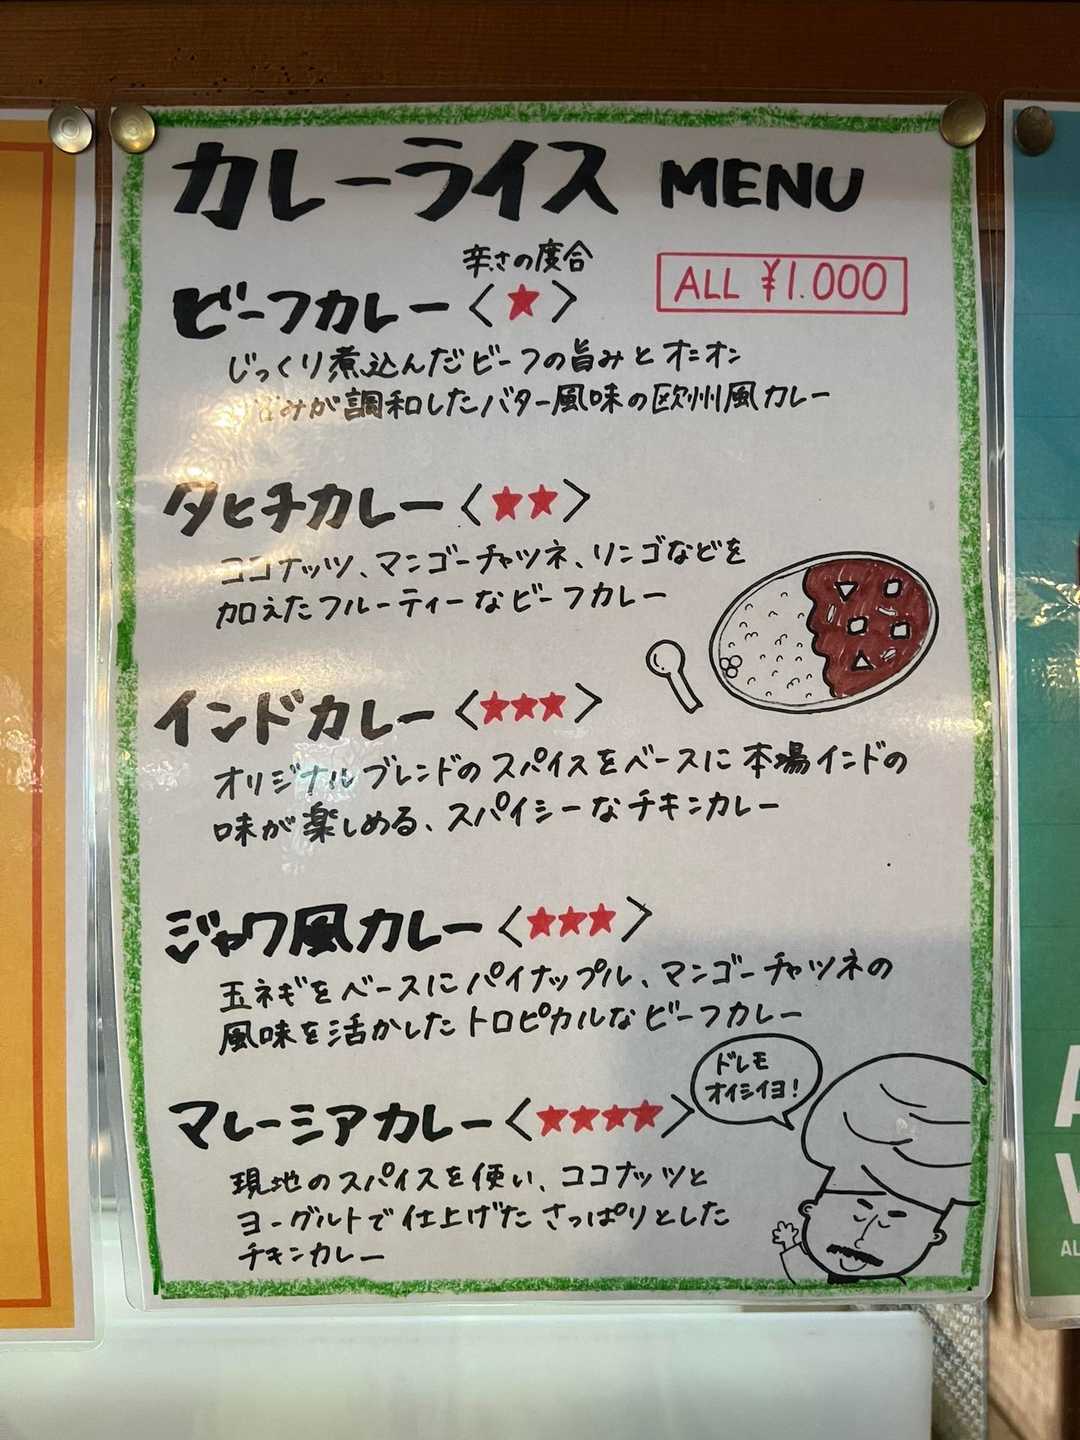 カレーライス MENU
辛さの度合
ALL ¥1.000
ビーフカレー〈★〉
じっくり煮込んだビーフの旨みとオニオン
みが調和したバター風味の欧州風カレー
タヒチカレー〈★★〉
ココナッツ、マンゴーチャツネ、リンゴなどを
加えたフルーティーなビーフカレー
インドカレー〈★★★〉
オリジナルブレンドのスパイスをベースに本場インドの
味が楽しめる、スパイシーなチキンカレー
ジャワ風カレー〈★★★〉
玉ネギをベースにパイナップル、マンゴーチャツネの
風味を活かしたトロピカルなビーフカレー
マレーシアカレー〈★★★★〉
現地のスパイスを使い、ココナッツと
ヨーグルトで仕上げたさっぱりとした
チキンカレー
ドレモ
オイシイヨ!